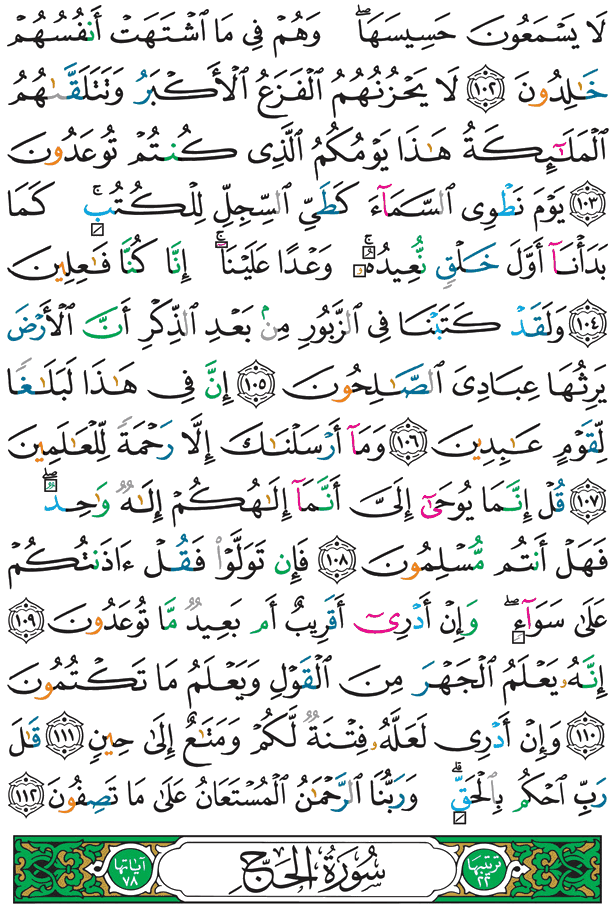 لَا يَسْمَعُونَ حَسِيسَهَا ۖ وَهُمْ فِي مَا اشْتَهَتْ أَنفُسُهُمْ
خَٰلِدُونَ ١٠٢ لَا يَحْزُنُهُمُ الْفَزَعُ الْأَكْبَرُ وَتَتَلَقَّىٰهُمُ
الْمَلَٰٓئِكَةُ هَٰذَا يَوْمُكُمُ الَّذِي كُنتُمْ تُوعَدُونَ
١٠٣ يَوْمَ نَطْوِي السَّمَآءَ كَطَيِّ السِّجِلِّ لِلْكُتُبِ ۚ كَمَا
بَدَأْنَآ أَوَّلَ خَلْقٍ نُّعِيدُهُ ۚ وَعْدًا عَلَيْنَآ ۚ إِنَّا كُنَّا فَٰعِلِينَ
١٠٤ وَلَقَدْ كَتَبْنَا فِي الزَّبُورِ مِنۢ بَعْدِ الذِّكْرِ أَنَّ الْأَرْضَ
يَرِثُهَا عِبَادِيَ الصَّٰلِحُونَ ١٠٥ إِنَّ فِي هَٰذَا لَبَلَٰغًا
لِّقَوْمٍ عَٰبِدِينَ ١٠٦ وَمَآ أَرْسَلْنَٰكَ إِلَّا رَحْمَةً لِّلْعَٰلَمِينَ
١٠٧ قُلْ إِنَّمَا يُوحَىٰٓ إِلَيَّ أَنَّمَآ إِلَٰهُكُمْ إِلَٰهٌ وَٰحِدٌ ۖ
فَهَلْ أَنتُم مُّسْلِمُونَ ١٠٨ فَإِن تَوَلَّوْا فَقُلْ ءَاذَنتُكُمْ
عَلَىٰ سَوَآءٍ ۖ وَإِنْ أَدْرِيٓ أَقَرِيبٌ أَم بَعِيدٌ مَّا تُوعَدُونَ ١٠٩
إِنَّهُۥ يَعْلَمُ الْجَهْرَ مِنَ الْقَوْلِ وَيَعْلَمُ مَا تَكْتُمُونَ
١١٠ وَإِنْ أَدْرِي لَعَلَّهُۥ فِتْنَةٌ لَّكُمْ وَمَتَٰعٌ إِلَىٰ حِينٍ ١١١ قَٰلَ
رَبِّ احْكُم بِالْحَقِّ ۗ وَرَبُّنَا الرَّحْمَٰنُ الْمُسْتَعَانُ عَلَىٰ مَا تَصِفُونَ ١١٢
ترتيبها ٢٢ سُورَةُ الحَجِّ آياتها ٧٨